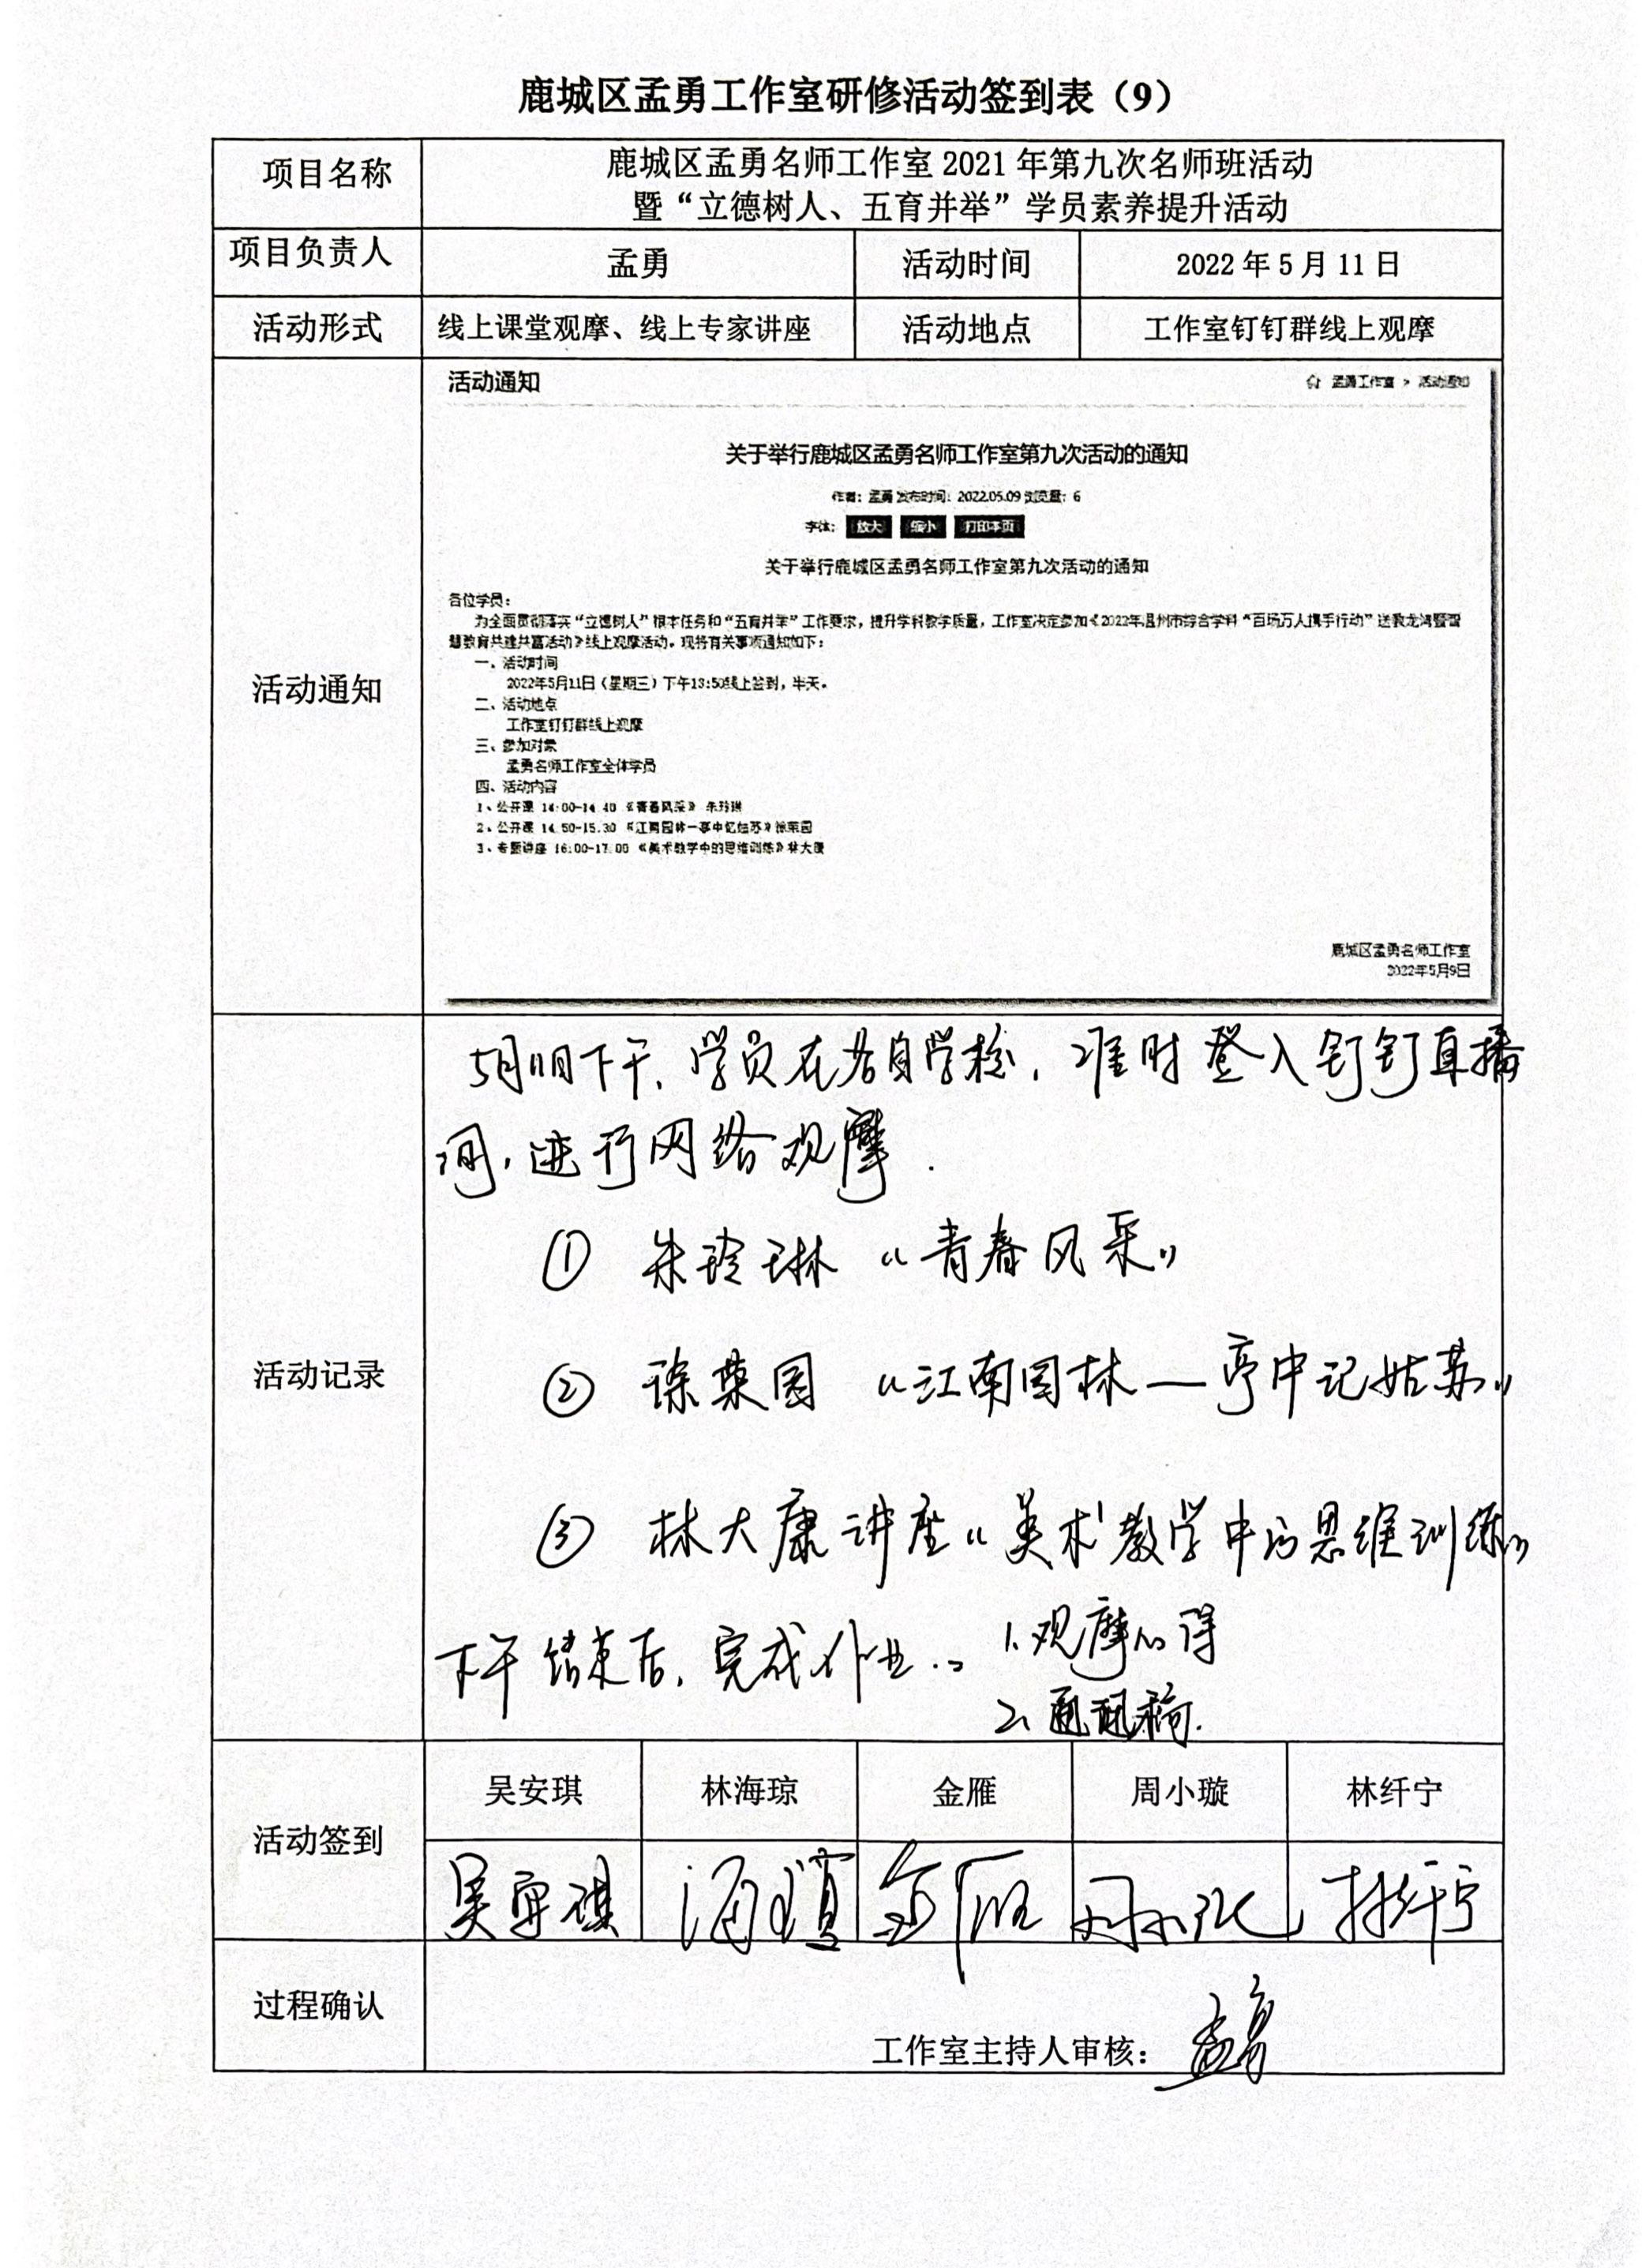 鹿城区孟勇工作室研修活动签到表（9）
项目名称
鹿城区孟勇名师工作室 2021 年第九次名师班活动
暨“立德树人、五育并举”学员素养提升活动
项目负责人 孟勇 活动时间 2022 年 5 月 11 日
活动形式 线上课堂观摩、线上专家讲座 活动地点 工作室钉钉群线上观摩
活动通知
活动通知 孟勇工作室 > 活动通知
关于举行鹿城区孟勇名师工作室第九次活动的通知
作者：孟勇 发布时间：2022.05.09 浏览量：6
字体： 放大 缩小 打印本页
关于举行鹿城区孟勇名师工作室第九次活动的通知
各位学员：
为全面贯彻落实“立德树人”根本任务和“五育并举”工作要求，提升学科教学质量，工作室决定参加《2022年温州市综合学科“百场万人携手行动”送教龙湾暨智
慧教育共建共富活动》线上观摩活动。现将有关事项通知如下：
一、活动时间
2022年5月11日（星期三）下午13:50线上签到，半天。
二、活动地点
工作室钉钉群线上观摩
三、参加对象
孟勇名师工作室全体学员
四、活动内容
1、公开课 14:00-14.40 《青春风采》 朱玲琳
2、公开课 14.50-15.30 《江南园林一亭中忆姑苏》徐荣园
3、专题讲座 16:00-17:00 《美术教学中的思维训练》林大康
鹿城区孟勇名师工作室
2022年5月9日
活动记录
5月11日下午，学员在各自学校，准时登入钉钉直播
间，进行网络观摩.
① 朱玲琳 《青春风采》
② 徐荣园 《江南园林—亭中记姑苏》
③ 林大康讲座《美术教学中的思维训练》
下午结束后，完成作业.. 1.观摩心得
2、通讯稿.
活动签到
吴安琪 林海琼 金雁 周小璇 林纤宁
吴安琪 海琼 金雁 林纤宁
过程确认
工作室主持人审核： 孟勇